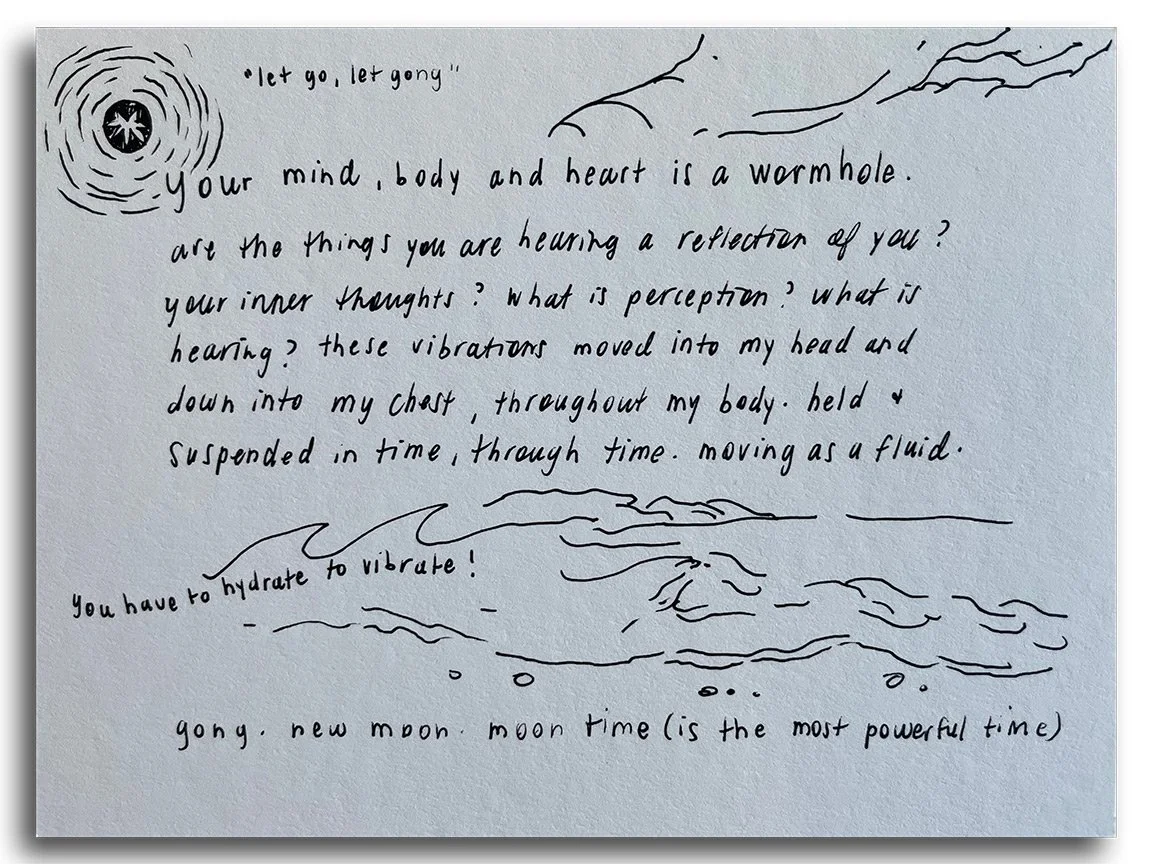 "let go, let gong"
your mind, body and heart is a wormhole.
are the things you are hearing a reflection of you?
your inner thoughts? what is perception? what is
hearing? these vibrations moved into my head and
down into my chest, throughout my body. held +
suspended in time, through time. moving as a fluid.
you have to hydrate to vibrate!
gong. new moon. moon time (is the most powerful time)